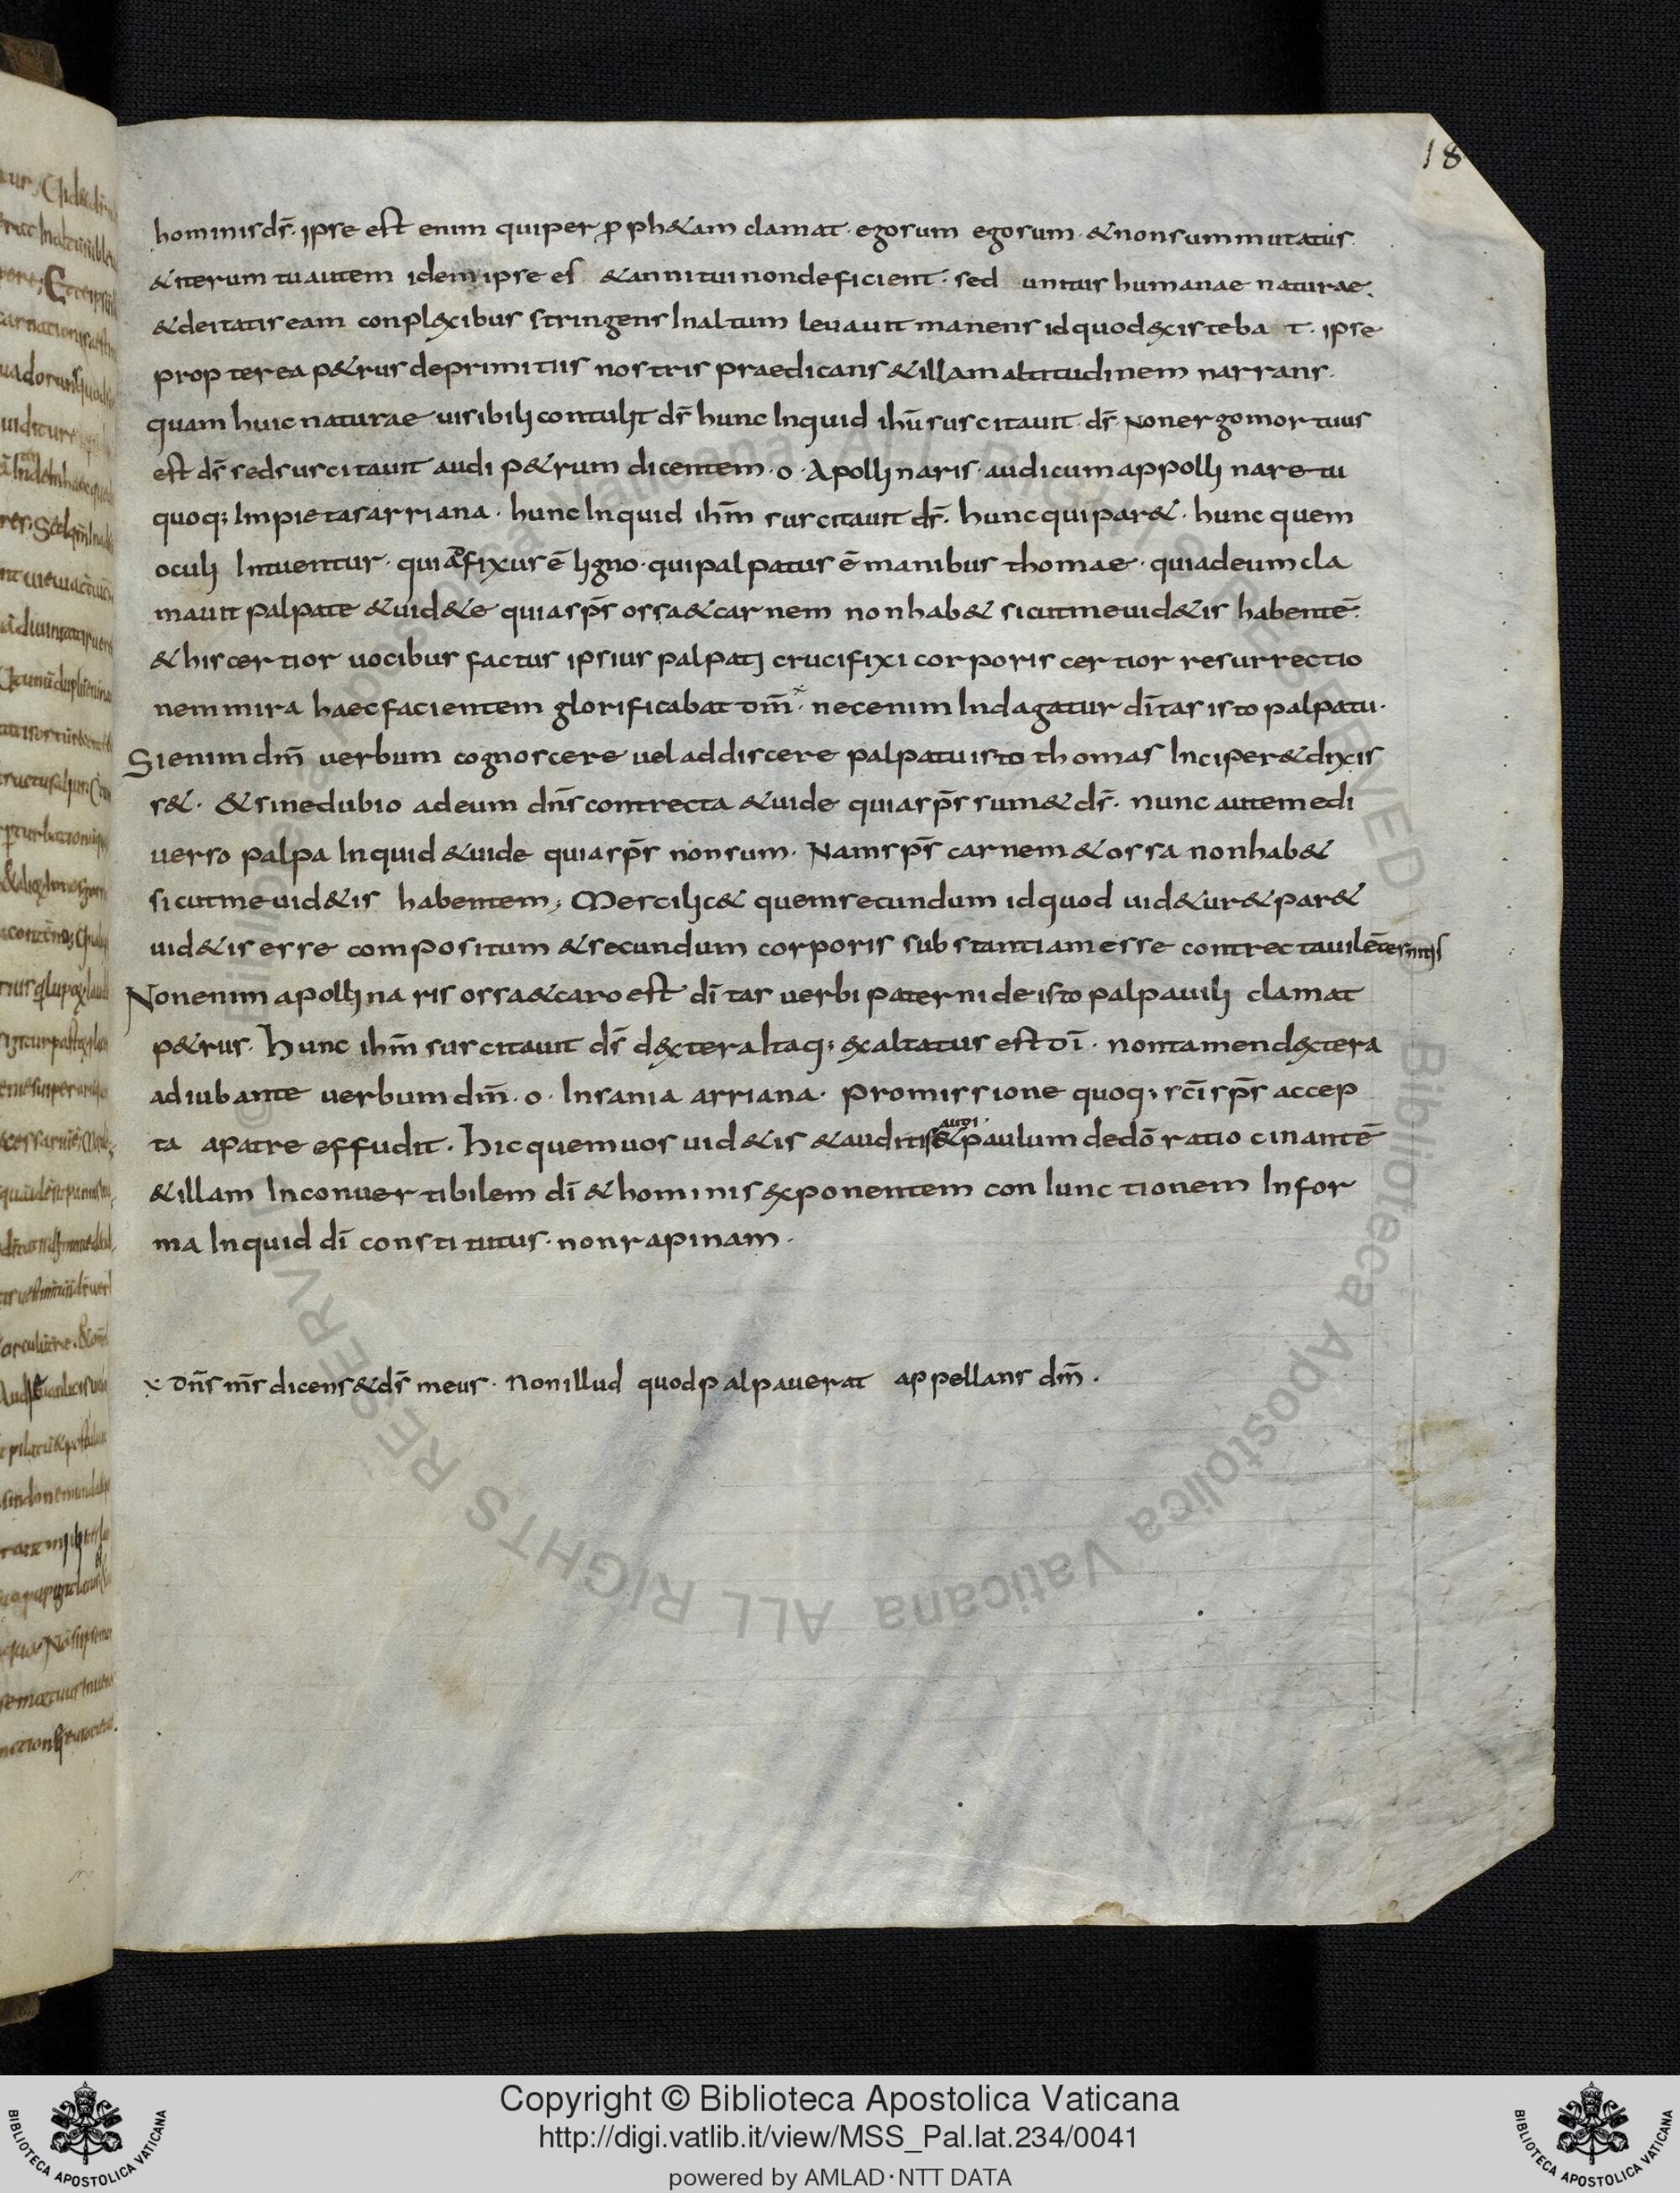 18
hominis ds̄. ipse est enim qui per ꝓph&am clamat. ego sum ego sum. & non sum mutatus.
& iterum tu autem idem ipse es & anni tui non deficient. sed unitis humanae naturae.
& deitatis eam conplexibus stringens In altum leuauit manens id quod existeba t. ipse
propterea p&rus de primitiis nostris praedicans & illam altitudinem narrans.
quam huic naturae uisibili contulit ds̄ hunc Inquid ihū suscitauit ds̄. Non ergo mortuus
est ds̄ sed suscitauit audi p&rum dicentem. o. Apollinaris. audi cum appollinare tu
quoq; Impietas arriana. hunc Inquid ihm̄ suscitauit ds̄. hunc qui par&. hunc quem
oculi Intuentur. qui affixus ē ligno. qui palpatus ē manibus thomae. qui ad eum cla
mauit palpate & uid&e quia sp̄s ossa & carnem non hab& sicut me uid&is habentē.
& his certior uocibus factus ipsius palpati crucifixi corporis certior resurrectio
nem mira haec facientem glorificabat dm̄. nec enim Indagatur dītas isto palpatu.
Si enim dm̄ uerbum cognoscere uel addiscere palpatu isto thomas Inciper& dixis
s&. & sine dubio ad eum dn̄s contrecta & uide quia sp̄s sum & ds̄. nunc autem e di
uerso palpa Inquid & uide quia sp̄s non sum. Nam sp̄s carnem & ossa non hab&
sicut me uid&is habentem;
uid&is esse compositum & secundum corporis substantiam esse contrectauilē
Non enim apollinaris ossa & caro est dītas uerbi paterni de isto palpauili clamat
p&rus. Hunc ihm̄ suscitauit ds̄ dextera Itaq; exaltatus est dī. non tamen dextera
adiubante uerbum dm̄. o. Insania arriana. promissione quoq; sc̄i sp̄s accep
ta a patre effudit. Hic quem uos uid&is & auditis & audi paulum de dō ratiocinantē
& illam Inconuertibilem dī & hominis exponentem coniunctionem In for
ma Inquid dī constitutus. non rapinam.
dn̄s m̄s dicens & ds̄ meus. Non illud quod palpauerat appellans dm̄.
Copyright © Biblioteca Apostolica Vaticana
http://digi.vatlib.it/view/MSS_Pal.lat.234/0041
powered by AMLAD·NTT DATA
BIBLIOTECA APOSTOLICA VATICANA
BIBLIOTECA APOSTOLICA VATICANA